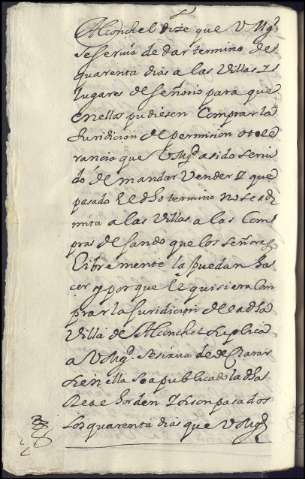 Monchel dize que V Mgd
se servio de dar termino de
quarenta dias a las Villas Y
lugares de señorio para que
en ellas pudiesen Comprar la
Juridicion de permision o tole
rancia que V Mgd a sido servi
do de mandar vender Y que
pasado el dho termino no se ad
mita a las Villas a las Com
pras dejando que los señores
libremente la puedan ha
cer y por que el quisiera Com
prar la Juridicion de la dha
Villa de Monchel suplica
a V Mgd se sirva de declarar
si en ella se a publicado la dha
Real horden Y si son pasados
los quarenta dias que V Mgd